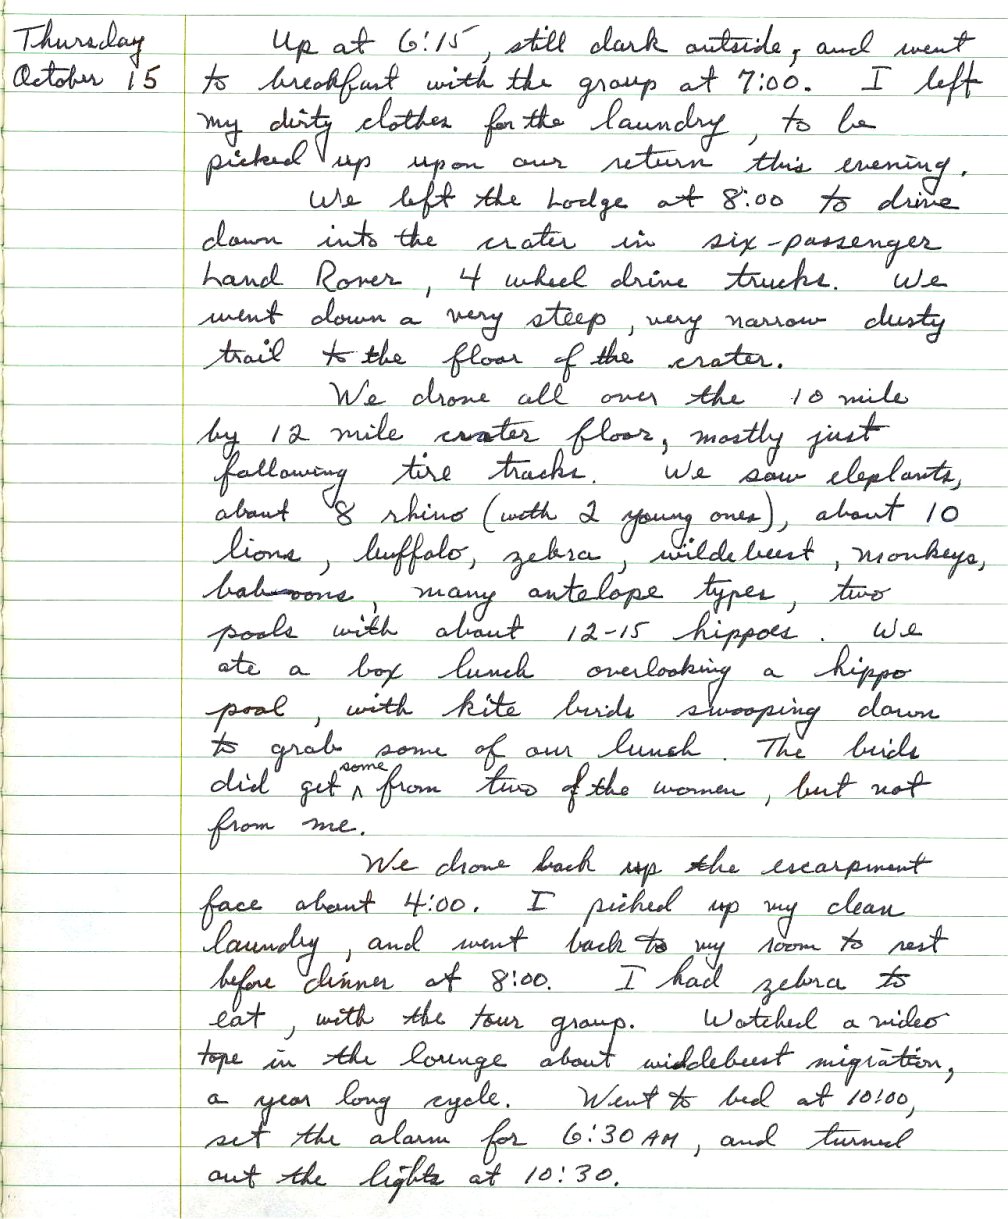 Thursday
October 15
Up at 6:15, still dark outside, and went
to breakfast with the group at 7:00. I left
my dirty clothes for the laundry, to be
picked up upon our return this evening.
We left the Lodge at 8:00 to drive
down into the crater in six-passenger
Land Rover, 4 wheel drive trucks. We
went down a very steep, very narrow dusty
trail to the floor of the crater.
We drove all over the 10 mile
by 12 mile crater floor, mostly just
following tire tracks. We saw eleplants,
about 8 rhino (with 2 young ones), about 10
lions, buffalo, zebra, wildebeest, monkeys,
baboons, many antelope types, two
pools with about 12-15 hippoes. We
ate a box lunch overlooking a hippo
pool, with kite birds swooping down
to grab some of our lunch. The birds
did get some from two of the women, but not
from me.
We drove back up the escarpment
face about 4:00. I picked up my clean
laundry, and went back to my room to rest
before dinner at 8:00. I had zebra to
eat, with the tour group. Watched a video
tape in the lounge about widdebeest migration,
a year long cycle. Went to bed at 10:00,
set the alarm for 6:30 AM, and turned
out the lights at 10:30.